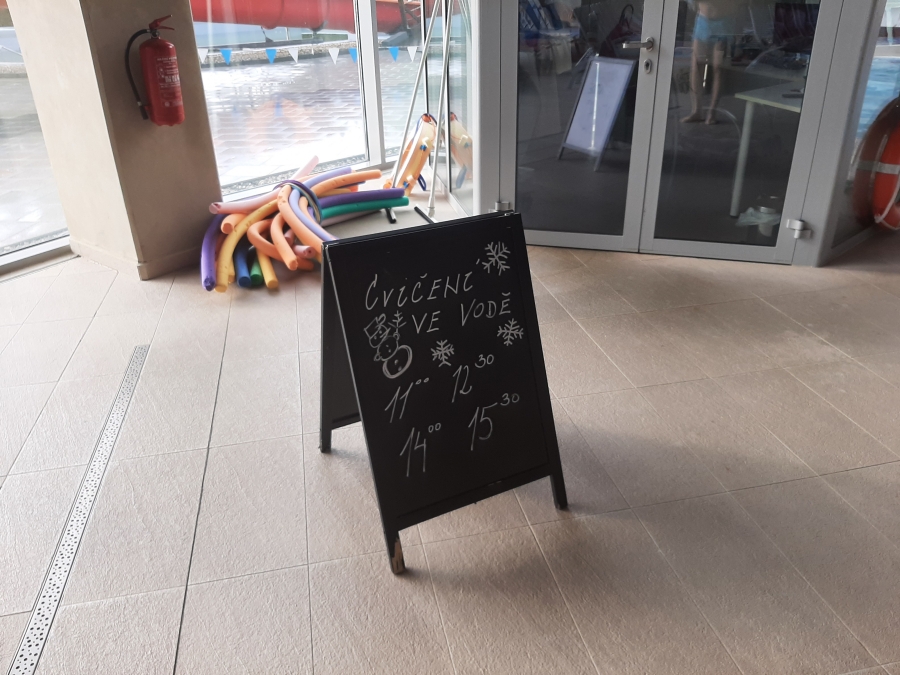 CVIČENÍ
VE VODĚ
11⁰⁰ 12³⁰
14⁰⁰ 15³⁰